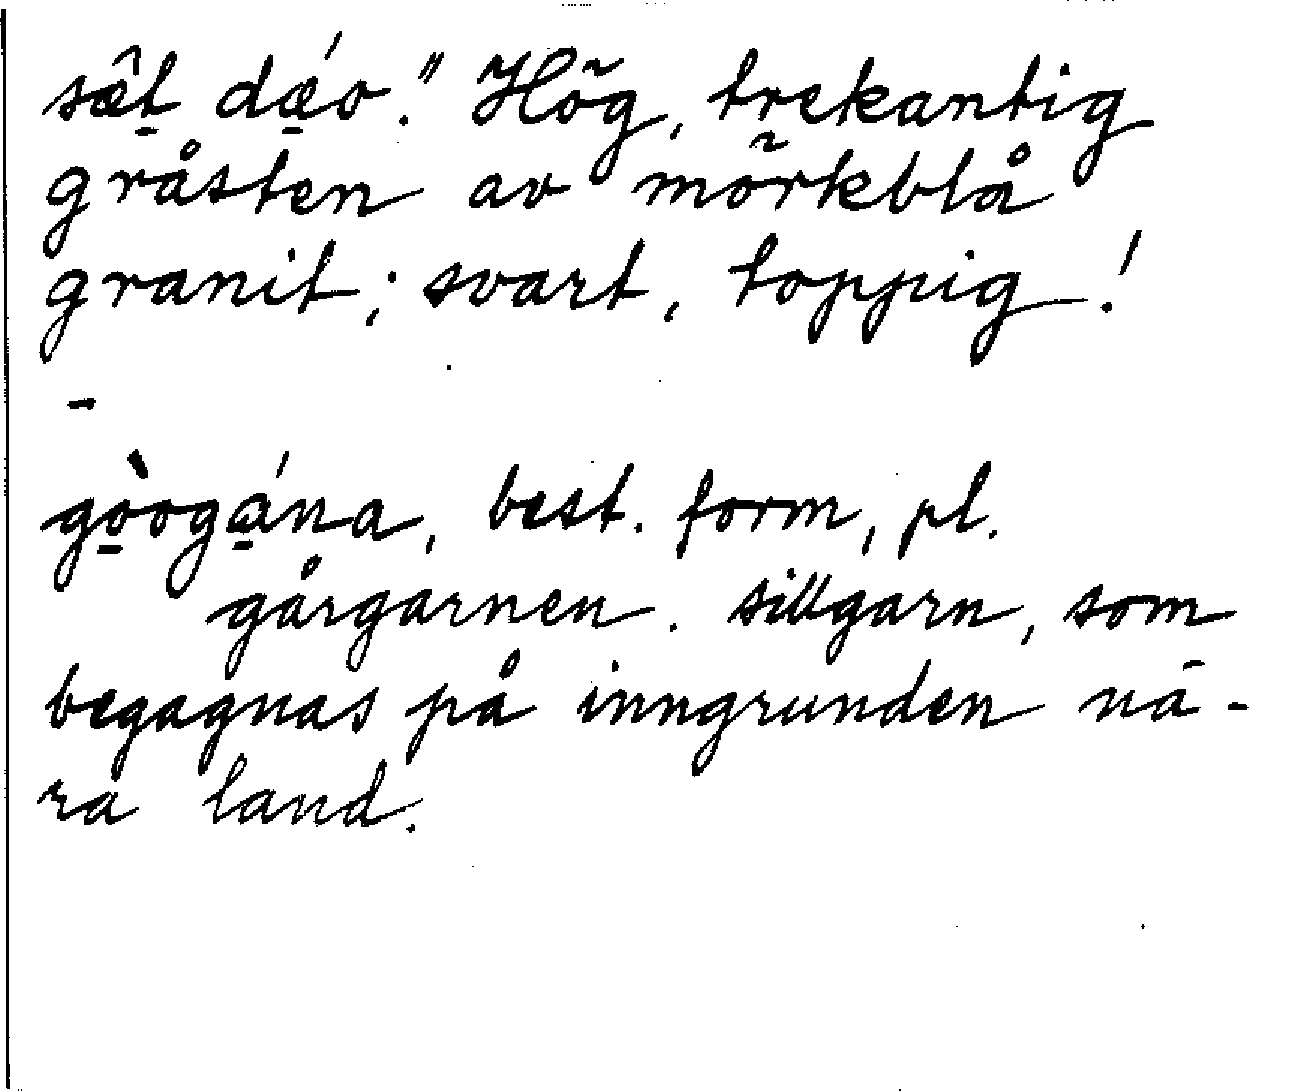 sæ̂t dǽo." Hög, trekantig
gråsten av mörkblå
granit; svart, toppig!
-
gòogána, best. form, pl.
gårgarnen. sillgarn, som
begagnas på inngrunden nä-
ra land.